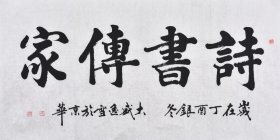 詩書傳家
歲在丁酉銀冬 逸雪於京華